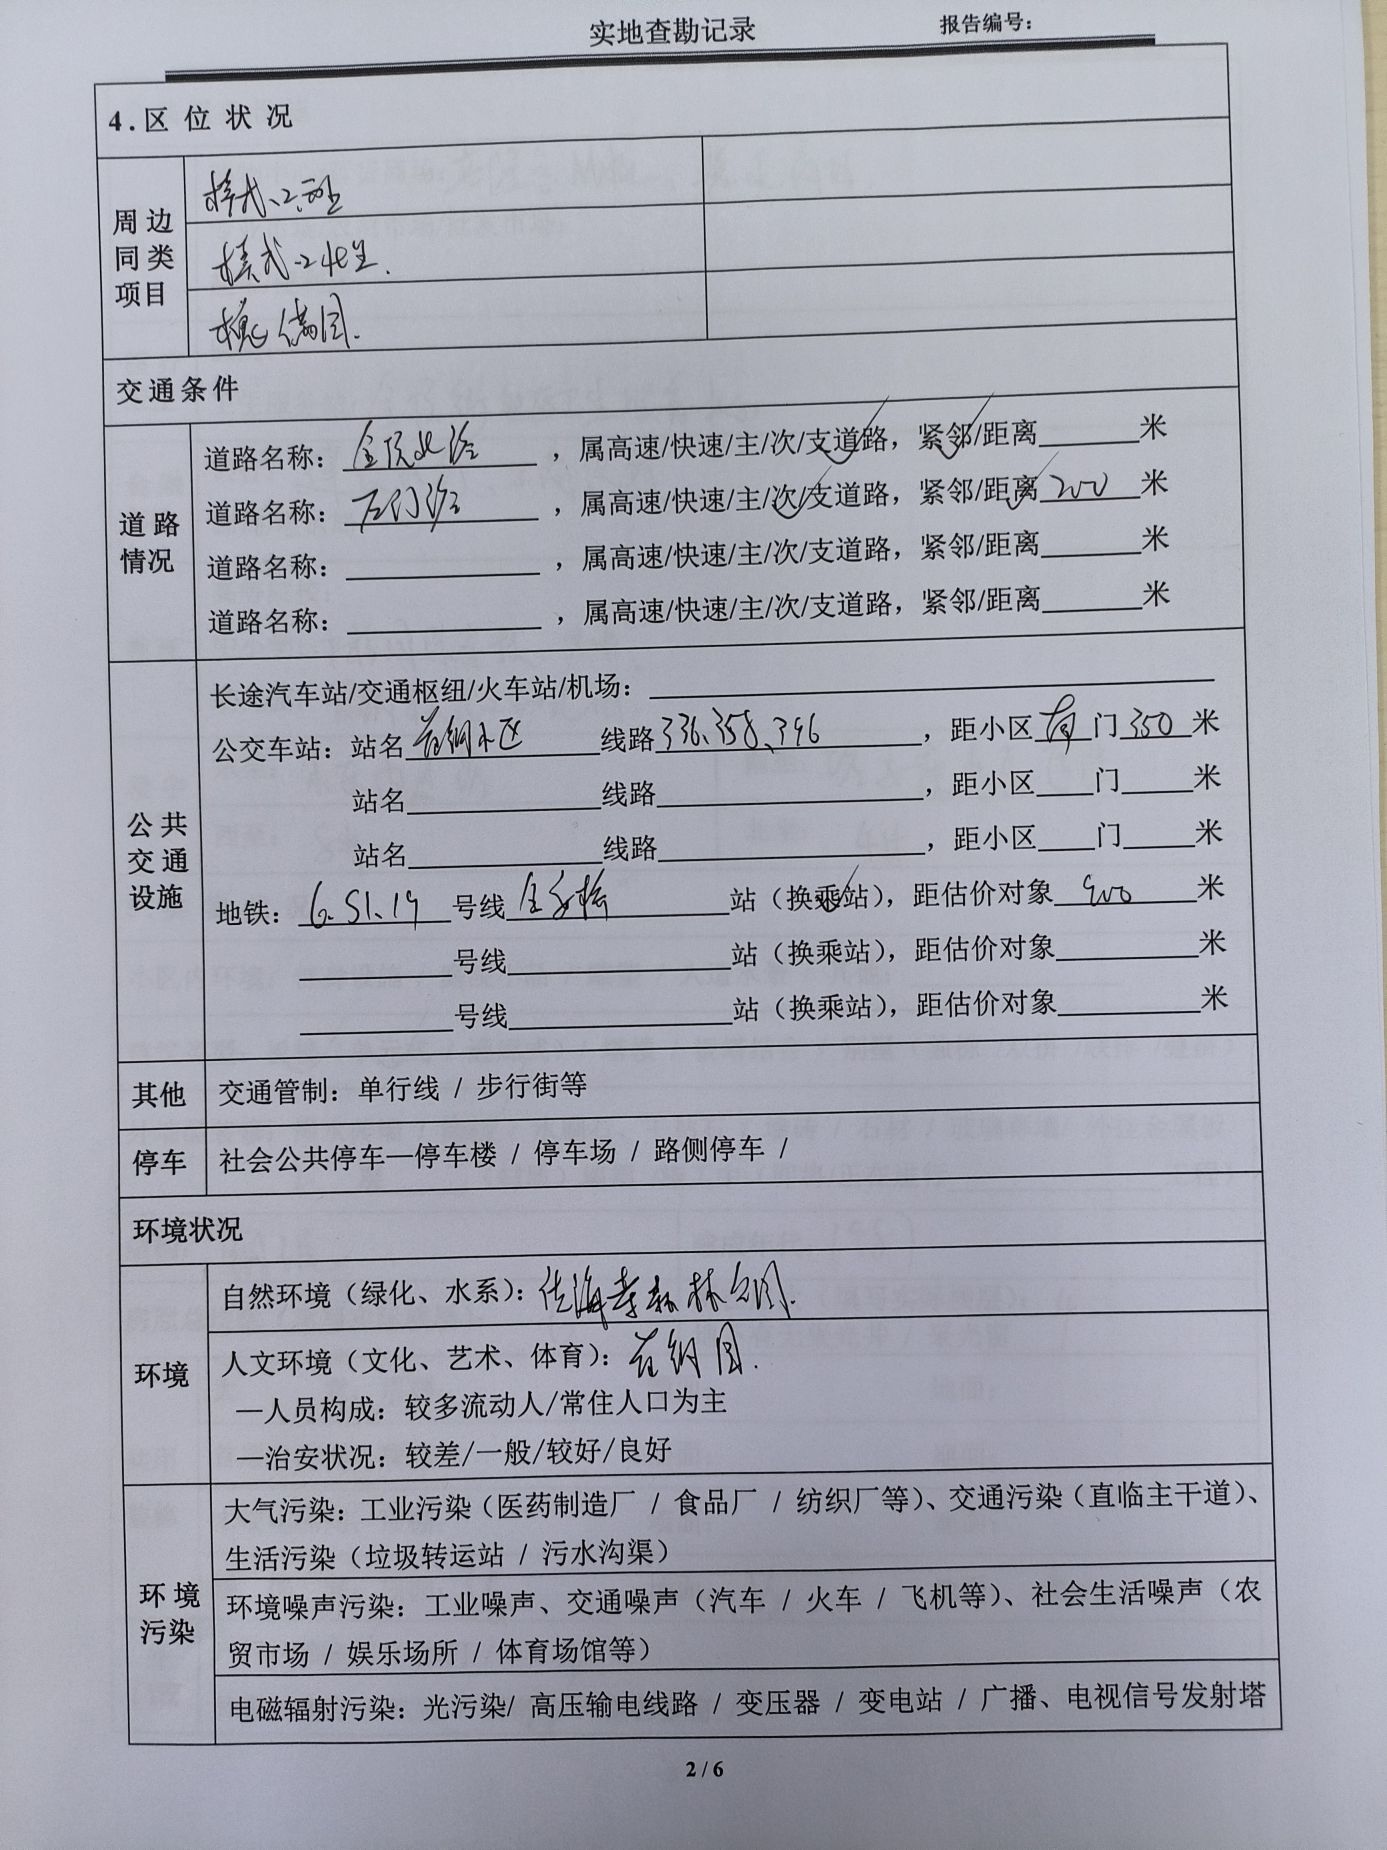 实地查勘记录
报告编号：
4.区位状况
周边
同类
项目
模式口西里
模式口北里
交通条件
道路
情况
道路名称：金顶北路，属高速/快速/主/次/支道路，紧邻/距离______米
道路名称：石门路，属高速/快速/主/次/支道路，紧邻/距离200米
道路名称：______，属高速/快速/主/次/支道路，紧邻/距离______米
道路名称：______，属高速/快速/主/次/支道路，紧邻/距离______米
公共
交通
设施
长途汽车站/交通枢纽/火车站/机场：______
公交车站：站名首钢小区线路336、358、396，距小区南门350米
站名______线路______，距小区____门____米
站名______线路______，距小区____门____米
地铁：6、S1、19号线金安桥站（换乘站），距估价对象900米
______号线______站（换乘站），距估价对象______米
______号线______站（换乘站），距估价对象______米
其他
交通管制：单行线 / 步行街等
停车
社会公共停车—停车楼 / 停车场 / 路侧停车 /
环境状况
环境
自然环境（绿化、水系）：法海寺森林公园.
人文环境（文化、艺术、体育）：首钢园.
—人员构成：较多流动人/常住人口为主
—治安状况：较差/一般/较好/良好
环境
污染
大气污染：工业污染（医药制造厂 / 食品厂 / 纺织厂等）、交通污染（直临主干道）、
生活污染（垃圾转运站 / 污水沟渠）
环境噪声污染：工业噪声、交通噪声（汽车 / 火车 / 飞机等）、社会生活噪声（农
贸市场 / 娱乐场所 / 体育场馆等）
电磁辐射污染：光污染/ 高压输电线路 / 变压器 / 变电站 / 广播、电视信号发射塔
2 / 6